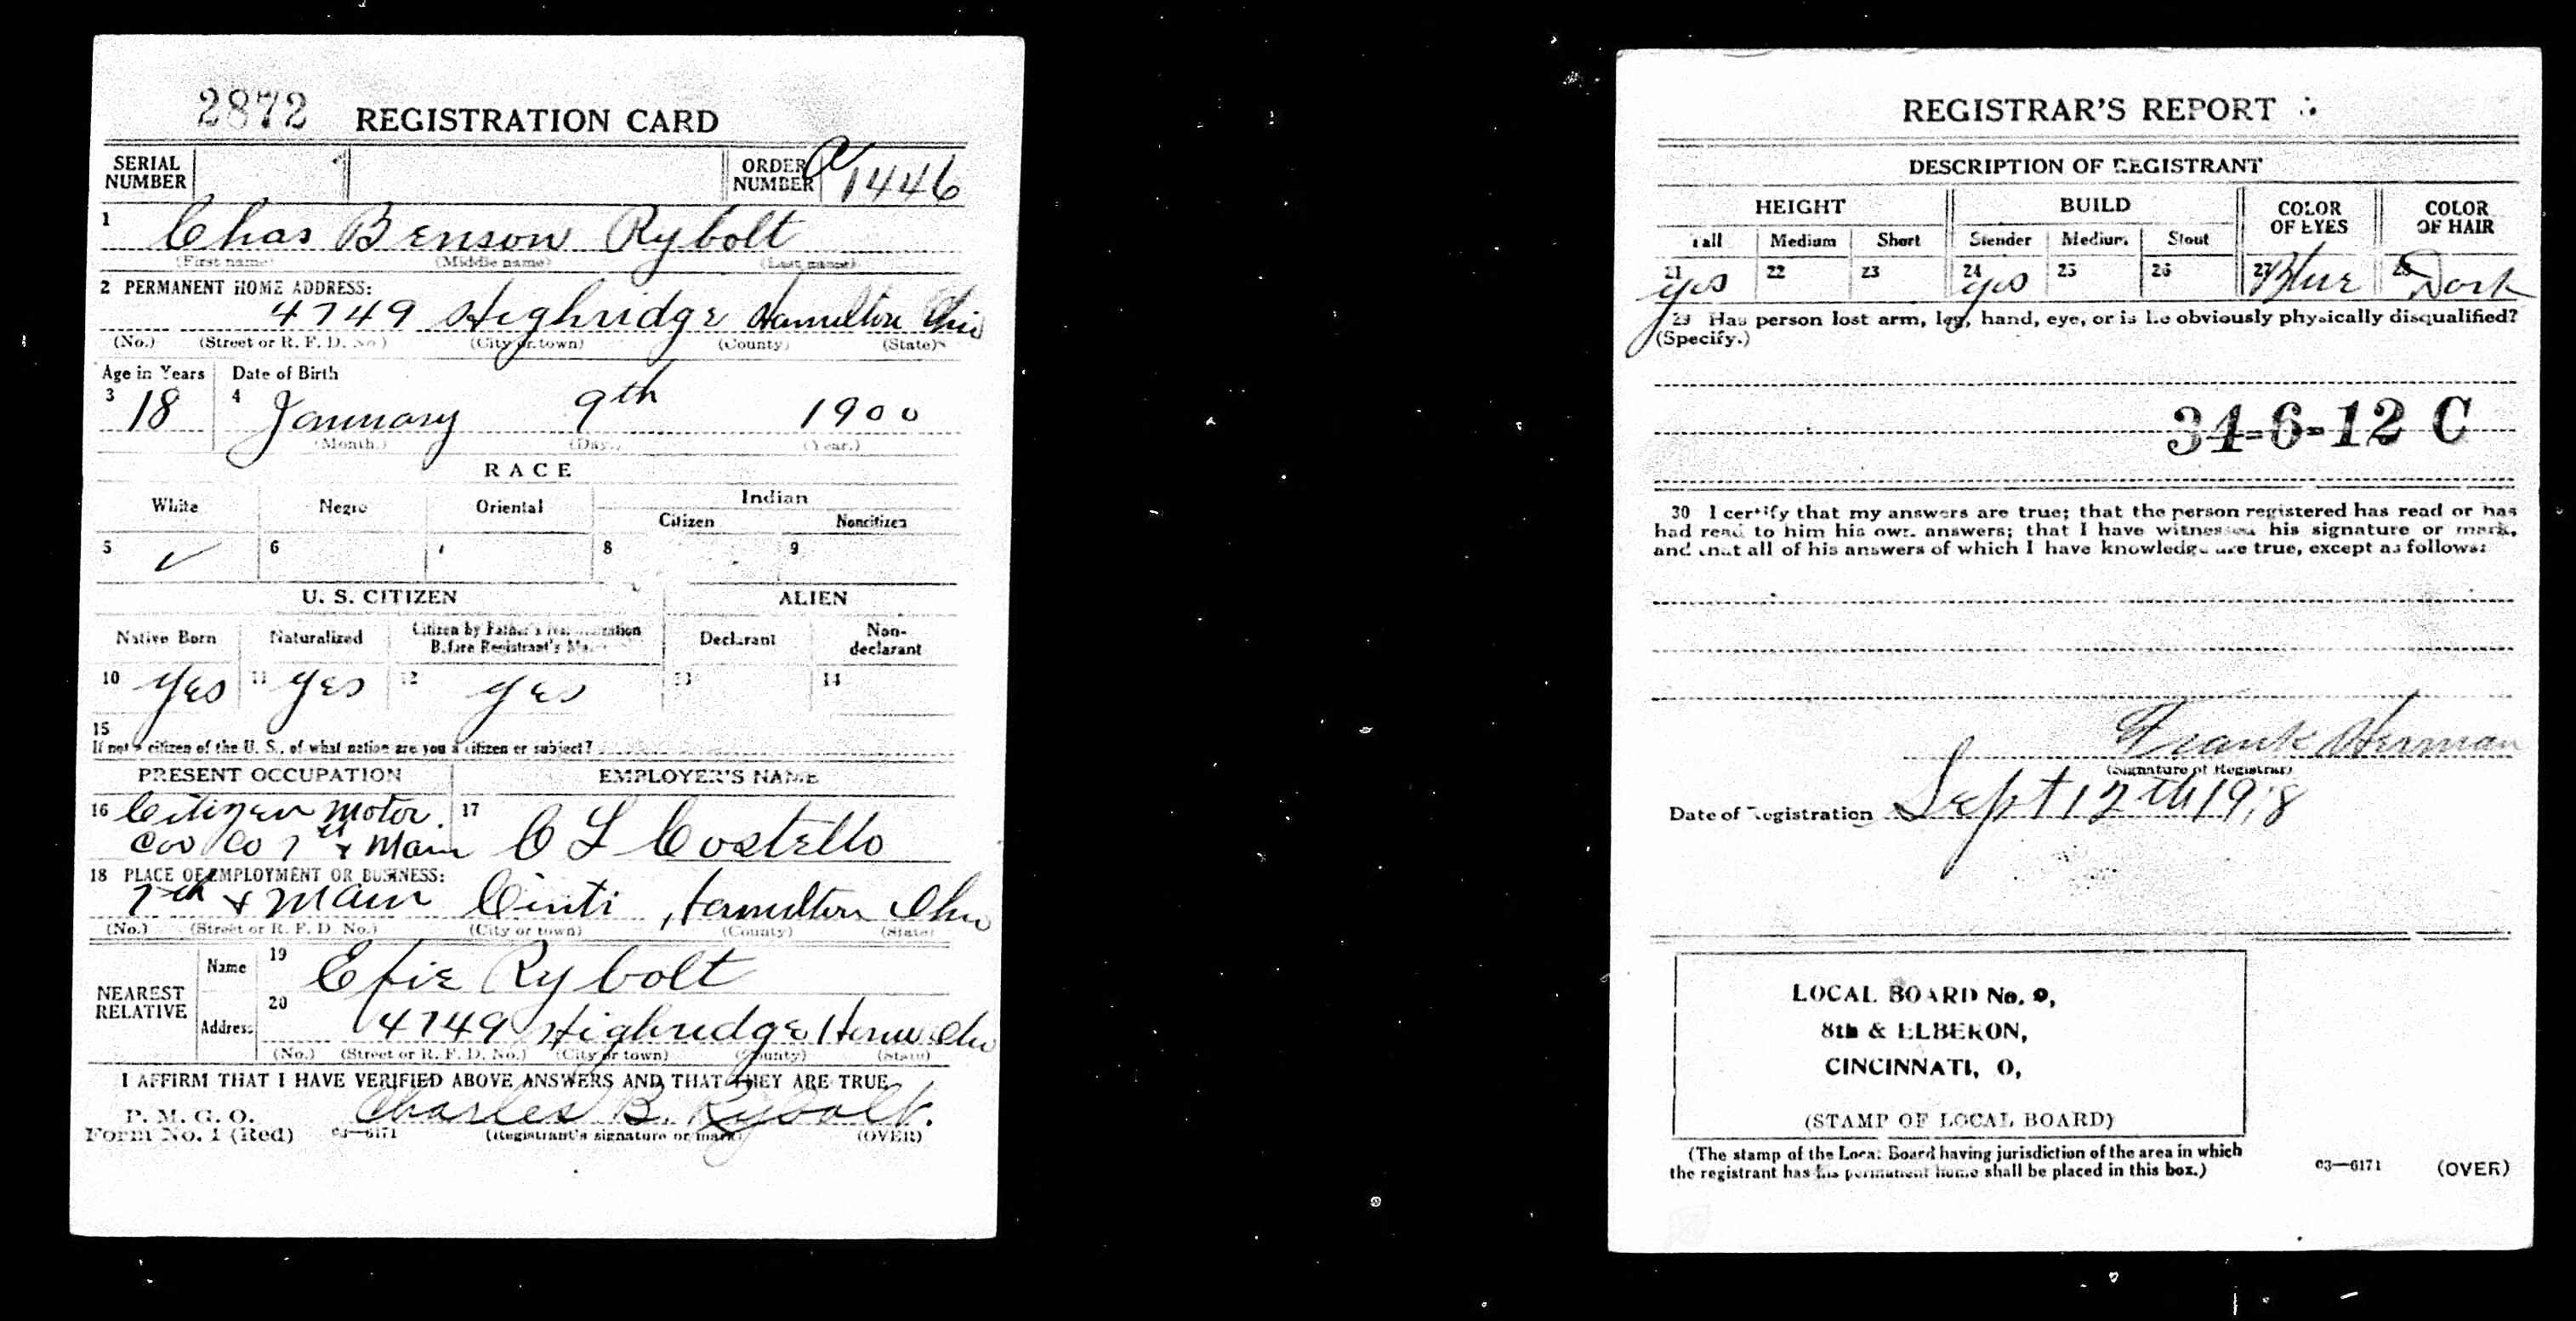 2872 REGISTRATION CARD
SERIAL NUMBER
ORDER NUMBER A 1446
1 Chas Benson Rybolt
(First name) (Middle name) (Last name)
2 PERMANENT HOME ADDRESS:
4749 Highridge Hamilton Ohio
(No.) (Street or R. F. D. No.) (City or town) (County) (State)
Age in Years Date of Birth
3 18 4 January 9th 1900
(Month.) (Day.) (Year.)
RACE
White Negro Oriental Indian
Citizen Noncitizen
5 ✓ 6 7 8 9
U. S. CITIZEN ALIEN
Native Born Naturalized Citizen by Father's Naturalization Before Registrant's Majority Declarant Non-declarant
10 Yes 11 Yes 12 Yes 13 14
15
If not a citizen of the U. S., of what nation are you a citizen or subject?
PRESENT OCCUPATION EMPLOYER'S NAME
16 Citizen Motor 17
Car Co 7th & Main C L Costello
18 PLACE OF EMPLOYMENT OR BUSINESS:
7th & Main Cinti Hamilton Ohio
(No.) (Street or R. F. D. No.) (City or town) (County) (State)
NEAREST RELATIVE
Name 19 Efie Rybolt
Address 20 4749 Highridge Ham Ohio
(No.) (Street or R. F. D. No.) (City or town) (County) (State)
I AFFIRM THAT I HAVE VERIFIED ABOVE ANSWERS AND THAT THEY ARE TRUE
P. M. G. O.
Form No. 1 (Red) 03—6171 Charles B. Rybolt.
(Registrant's signature or mark) (OVER)
REGISTRAR'S REPORT
DESCRIPTION OF REGISTRANT
HEIGHT BUILD COLOR OF EYES COLOR OF HAIR
Tall Medium Short Slender Medium Stout
21 yes 22 23 24 yes 25 26 27 Blue 28 Dark
29 Has person lost arm, leg, hand, eye, or is he obviously physically disqualified?
(Specify.)
34-6-12 C
30 I certify that my answers are true; that the person registered has read or has
had read to him his own answers; that I have witnessed his signature or mark,
and that all of his answers of which I have knowledge are true, except as follows:
Frank Herman
(Signature of Registrar)
Date of Registration Sept 12th 1918
LOCAL BOARD No. 9,
8th & ELBERON,
CINCINNATI, O,
(STAMP OF LOCAL BOARD)
(The stamp of the Local Board having jurisdiction of the area in which
the registrant has his permanent home shall be placed in this box.)
03—6171 (OVER)